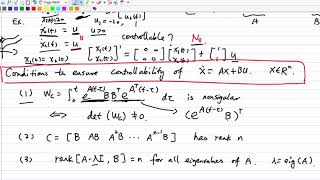 Ex.
ẋ₁(t) = u
ẋ₂(t) = u
u₂ = -20,
controllable? No
[x₁(t) x₂(t)]' = [0 0 0 0][x₁(t) x₂(t)] + [1 1] u
Conditions to ensure controllability of ẋ = Ax+Bu. x∈Rⁿ.
(1) W_c = ∫₀ᵗ e^{A(t-τ)} B Bᵀ e^{Aᵀ(t-τ)} dτ is nonsingular
⟺ det(W_c) ≠ 0. (e^{A(t-τ)} B)ᵀ
(2) C = [B AB A²B … Aⁿ⁻¹B] has rank n
(3) rank[A-λI, B] = n for all eigenvalues of A. λ = eig(A).